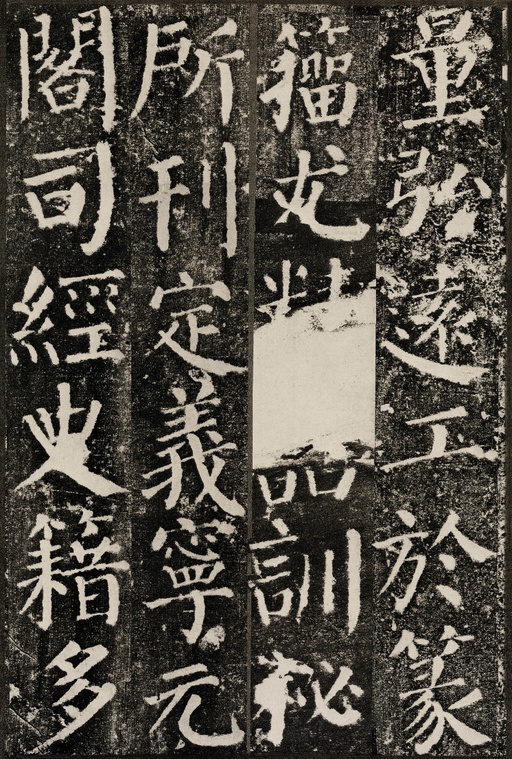 量弘遠工於篆
籀尤訓秘
所刊定義寧元
閣司經史籍多